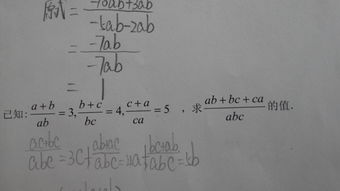 原式 = (-10ab+3ab)/(-5ab-2ab)
= (-7ab)/(-7ab)
= 1
已知: (a+b)/(ab) = 3, (b+c)/(bc) = 4, (c+a)/(ca) = 5 ,求 (ab+bc+ca)/(abc) 的值.
(ac+bc)/(abc) = 3c + (ab+ac)/(abc) = 4a + (bc+ab)/(abc) = 5b